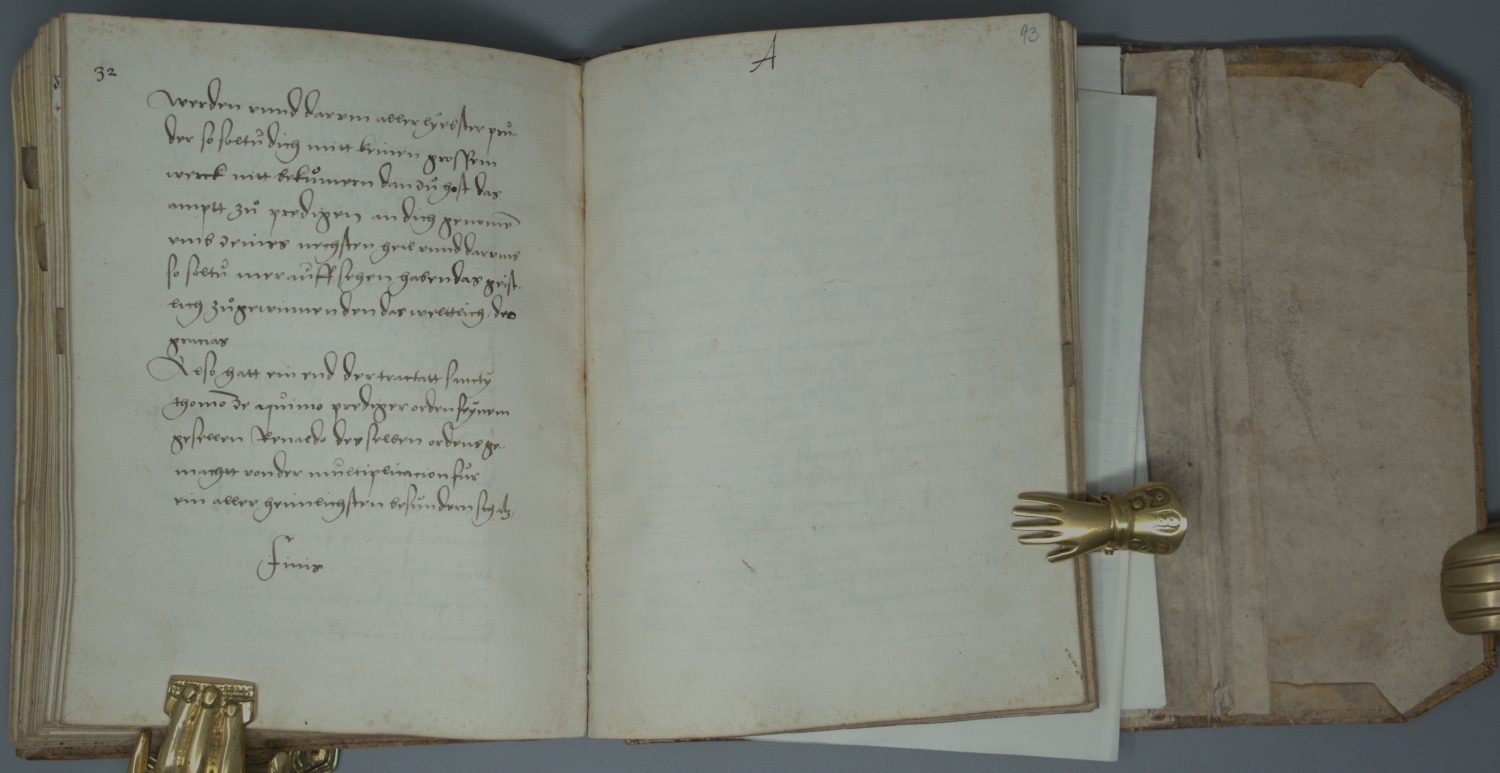 32
werden vnnd darvm aller lyebster pruͦ-
der so soltu dich mitt keinen grossem
werck nitt bekuͦmern dan duͦ host das
amptt zuͦ predigen an dich genomē
vmb deines nechsten heil vnnd darvmb
so soltu mer auff sehen haben das geist-
lich zuͦ gewinnen den das welttlich deo
gracias
Also hatt ein end der tractatt sancty
thomo de aquino prediger orden seynem
gesellen Renaldo des selben ordens ge-
machtt von der multiplicacion fur
ein aller heimlichsten besundern schatz
Finis
A
93